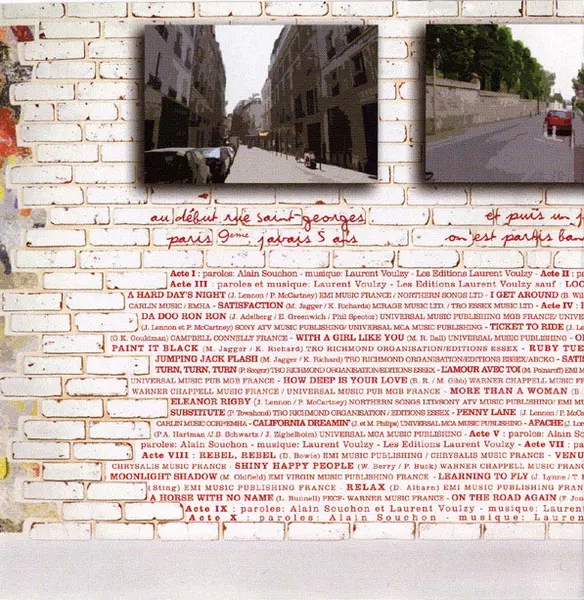 au début rue saint-georges
paris 9eme javais 5 ans
et puis un j
on est partis ba
Acte I : paroles: Alain Souchon - musique: Laurent Voulzy - Les Editions Laurent Voulzy - Acte II :
Acte III : paroles et musique: Laurent Voulzy - Les Editions Laurent Voulzy sauf : LOC
A HARD DAY'S NIGHT (J. Lennon / P. McCartney) EMI MUSIC FRANCE / NORTHERN SONGS LTD - I GET AROUND (B. Wil
CARLIN MUSIC / EMHA - SATISFACTION (M. Jagger / K. Richards) MIRAGE MUSIC LTD. / TRO ESSEX MUSIC LTD - Acte IV :
DA DOO RON RON (J. Adelberg / E. Greenwich / Phil Spector) UNIVERSAL MUSIC PUBLISHING MGB FRANCE/ UNIVER
(J. Lennon et P. McCartney) SONY ATV MUSIC PUBLISHING/ UNIVERSAL MCA MUSIC PUBLISHING - TICKET TO RIDE (J. L
(G.K. Gouldman) CAMPBELL CONNELLY FRANCE - WITH A GIRL LIKE YOU (M. R. Ball) UNIVERSAL MUSIC PUBLISHING -
PAINT IT BLACK (M. Jagger / K. Richard) TRO RICHMOND ORGANISATION/EDITIONS ESSEX - RUBY TUE
JUMPING JACK FLASH (M. Jagger / K. Richard) TRO RICHMOND ORGANISATION/EDITIONS ESSEX/ABCKO - SATI
TURN, TURN, TURN (P. Seeger) TRO RICHMOND ORGANISATION/EDITIONS ESSEX - L'AMOUR AVEC TOI (M. Polnareff) EMI M
UNIVERSAL MUSIC PUB MGB FRANCE - HOW DEEP IS YOUR LOVE (B. R. / M. Gibb) WARNER CHAPPELL MUSIC F
WARNER CHAPPELL MUSIC FRANCE / UNIVERSAL MUSIC PUB MGB FRANCE - MORE THAN A WOMAN (B.
ELEANOR RIGBY (J. Lennon / P. McCartney) NORTHERN SONGS LTD/SONY ATV MUSIC PUBLISHING FRANCE
SUBSTITUTE (P. Towshond) TRO RICHMOND ORGANISATION / EDITIONS ESSEX - PENNY LANE (J. Lennon / P. McC
CARLIN MUSIC CORP/EMHA - CALIFORNIA DREAMIN' (J. et M. Philips) UNIVERSAL MCA MUSIC PUBLISHING - APACHE (J. Lor
(P.A. Hartman /J.B Schwartz / J. Zigbelholm) UNIVERSAL MCA MUSIC PUBLISHING - Acte V : paroles: Alain So
paroles: Alain Souchon - musique: Laurent Voulzy - Les Editions Laurent Voulzy - Acte VII :
Acte VIII : REBEL, REBEL (D. Bowie) EMI MUSIC PUBLISHING / CHRYSALIS MUSIC FRANCE - VENU
CHRYSALIS MUSIC FRANCE - SHINY HAPPY PEOPLE (W. Berry / P. Buck) WARNER CHAPPELL MUSIC FRANC
MOONLIGHT SHADOW (M. Oldfield) EMI VIRGIN MUSIC PUBLISHING FRANCE - LEARNING TO FLY (J. Lynne / T. P
(Sting) EMI MUSIC PUBLISHING FRANCE - RELAX (D. Albarn) EMI MUSIC PUBLISHING FRANCE
A HORSE WITH NO NAME (L. Bunnell) PECF- WARNER MUSIC FRANCE - ON THE ROAD AGAIN (F. Jon
Acte IX : paroles: Alain Souchon et Laurent Voulzy - musique: Laurent
Acte X : paroles: Alain Souchon - musique: Lauren